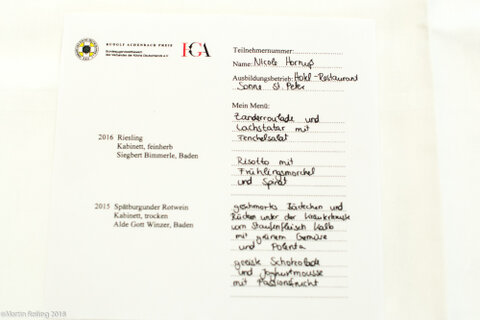 RUDOLF ACHENBACH PREIS
Bundesjugendwettbewerb
des Verbandes der Köche Deutschlands e.V.
Teilnehmernummer:
Name: Nicole Hornuß
Ausbildungsbetrieb: Hotel-Restaurant
Sonne St. Peter
Mein Menü:
Zanderroulade und
Lachstatar mit
Fenchelsalat
2016 Riesling
Kabinett, feinherb
Siegbert Bimmerle, Baden
Risotto mit
Frühlingsmorchel
und Spinat
2015 Spätburgunder Rotwein
Kabinett, trocken
Alde Gott Winzer, Baden
geschmortes Bäckchen und
Rücken unter der Kräuterkruste
vom Staufenfleisch Kalb
mit grünem Gemüse
und Polenta
geeiste Schokolade
und Joghurtmousse
mit Passionsfrucht
©Martin Reiling 2018